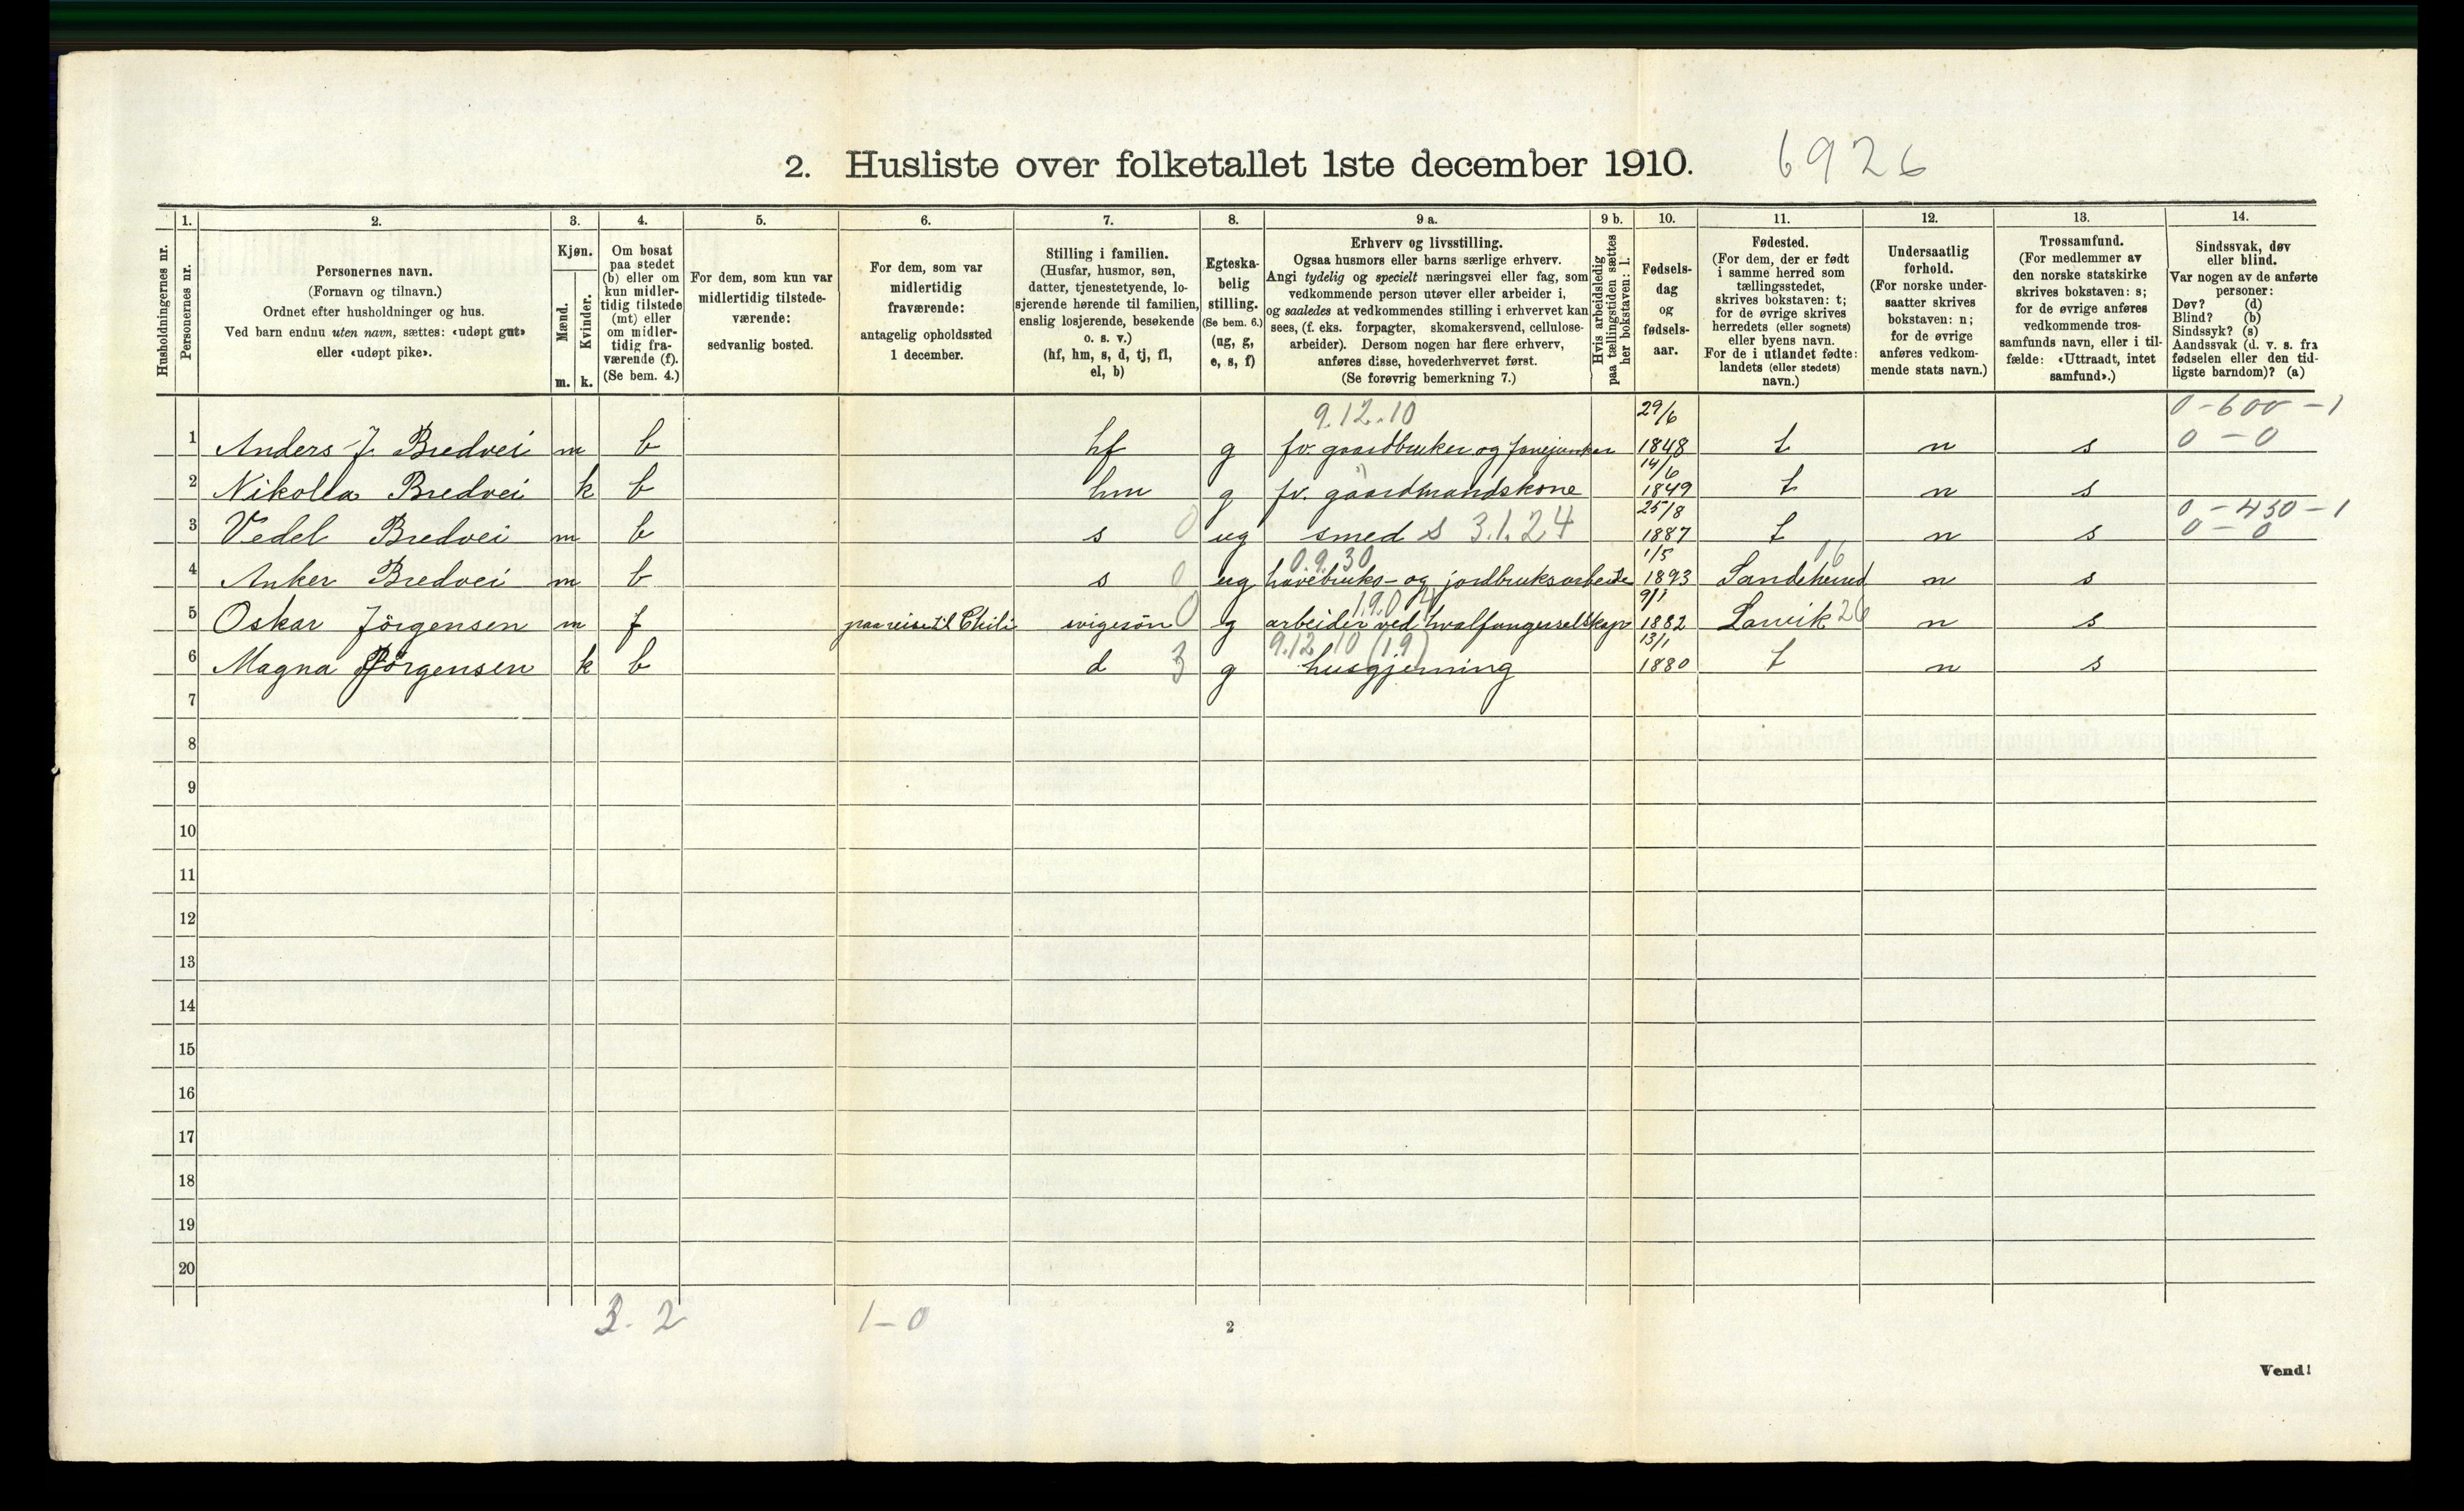 2. Husliste over folketallet 1ste december 1910. 6926
1. 2. 3. 4. 5. 6. 7. 8. 9 a. 9 b. 10. 11. 12. 13. 14.
Husholdningernes nr.
Personernes nr.
Personernes navn.
(Fornavn og tilnavn.)
Ordnet efter husholdninger og hus.
Ved barn endnu uten navn, sættes: «udøpt gut»
eller «udøpt pike».
Kjøn.
Mænd.
Kvinder.
m. k.
Om bosat
paa stedet
(b) eller om
kun midler-
tidig tilstede
(mt) eller
om midler-
tidig fra-
værende (f).
(Se bem. 4.)
For dem, som kun var
midlertidig tilstede-
værende:
sedvanlig bosted.
For dem, som var
midlertidig
fraværende:
antagelig opholdssted
1 december.
Stilling i familien.
(Husfar, husmor, søn,
datter, tjenestetyende, lo-
sjerende hørende til familien,
enslig losjerende, besøkende
o. s. v.)
(hf, hm, s, d, tj, fl,
el, b)
Egteska-
belig
stilling.
(Se bem. 6.)
(ug, g,
e, s, f)
Erhverv og livsstilling.
Ogsaa husmors eller barns særlige erhverv.
Angi tydelig og specielt næringsvei eller fag, som
vedkommende person utøver eller arbeider i,
og saaledes at vedkommendes stilling i erhvervet kan
sees, (f. eks. forpagter, skomakersvend, cellulose-
arbeider). Dersom nogen har flere erhverv,
anføres disse, hovederhvervet først.
(Se forøvrig bemerkning 7.)
Hvis arbeidsledig
paa tællingstiden sættes
her bokstaven: l.
Fødsels-
dag
og
fødsels-
aar.
Fødested.
(For dem, der er født
i samme herred som
tællingsstedet,
skrives bokstaven: t;
for de øvrige skrives
herredets (eller sognets)
eller byens navn.
For de i utlandet fødte:
landets (eller stedets)
navn.)
Undersaatlig
forhold.
(For norske under-
saatter skrives
bokstaven: n;
for de øvrige
anføres vedkom-
mende stats navn.)
Trossamfund.
(For medlemmer av
den norske statskirke
skrives bokstaven: s;
for de øvrige anføres
vedkommende tros-
samfunds navn, eller i til-
fælde: «Uttraadt, intet
samfund».)
Sindssvak, døv
eller blind.
Var nogen av de anførte
personer:
Døv? (d)
Blind? (b)
Sindssyk? (s)
Aandssvak (d. v. s. fra
fødselen eller den tid-
ligste barndom)? (a)
9.12.10 29/6 0-600-1
1 Anders J. Bredvei m b hf g fv. gaardbruker og fanejunker 1848 t n s 0-0
14/6
2 Nikolla Bredvei k b hm g fv. gaardmandskone 1849 t n s
25/8 0-450-1
3 Vedel Bredvei m b s 0 ug smed s 3.1.24 1887 t n s 0-0
0.9.30 1/5 16
4 Anker Bredvei m b s 0 ug havebruks- og jordbruksarbeide 1893 Sandeherred n s
1.9.04 9/1
5 Oskar Jörgensen m f paa reise til Chili svigersön 0 g arbeider ved hvalfangerselskap 1882 Larvik 26 n s
9.12.10 (19) 13/1
6 Magna Jörgensen k b d 3 g husgjerning 1880 t n s
7
8
9
10
11
12
13
14
15
16
17
18
19
20
3-2 1-0
2
Vend!